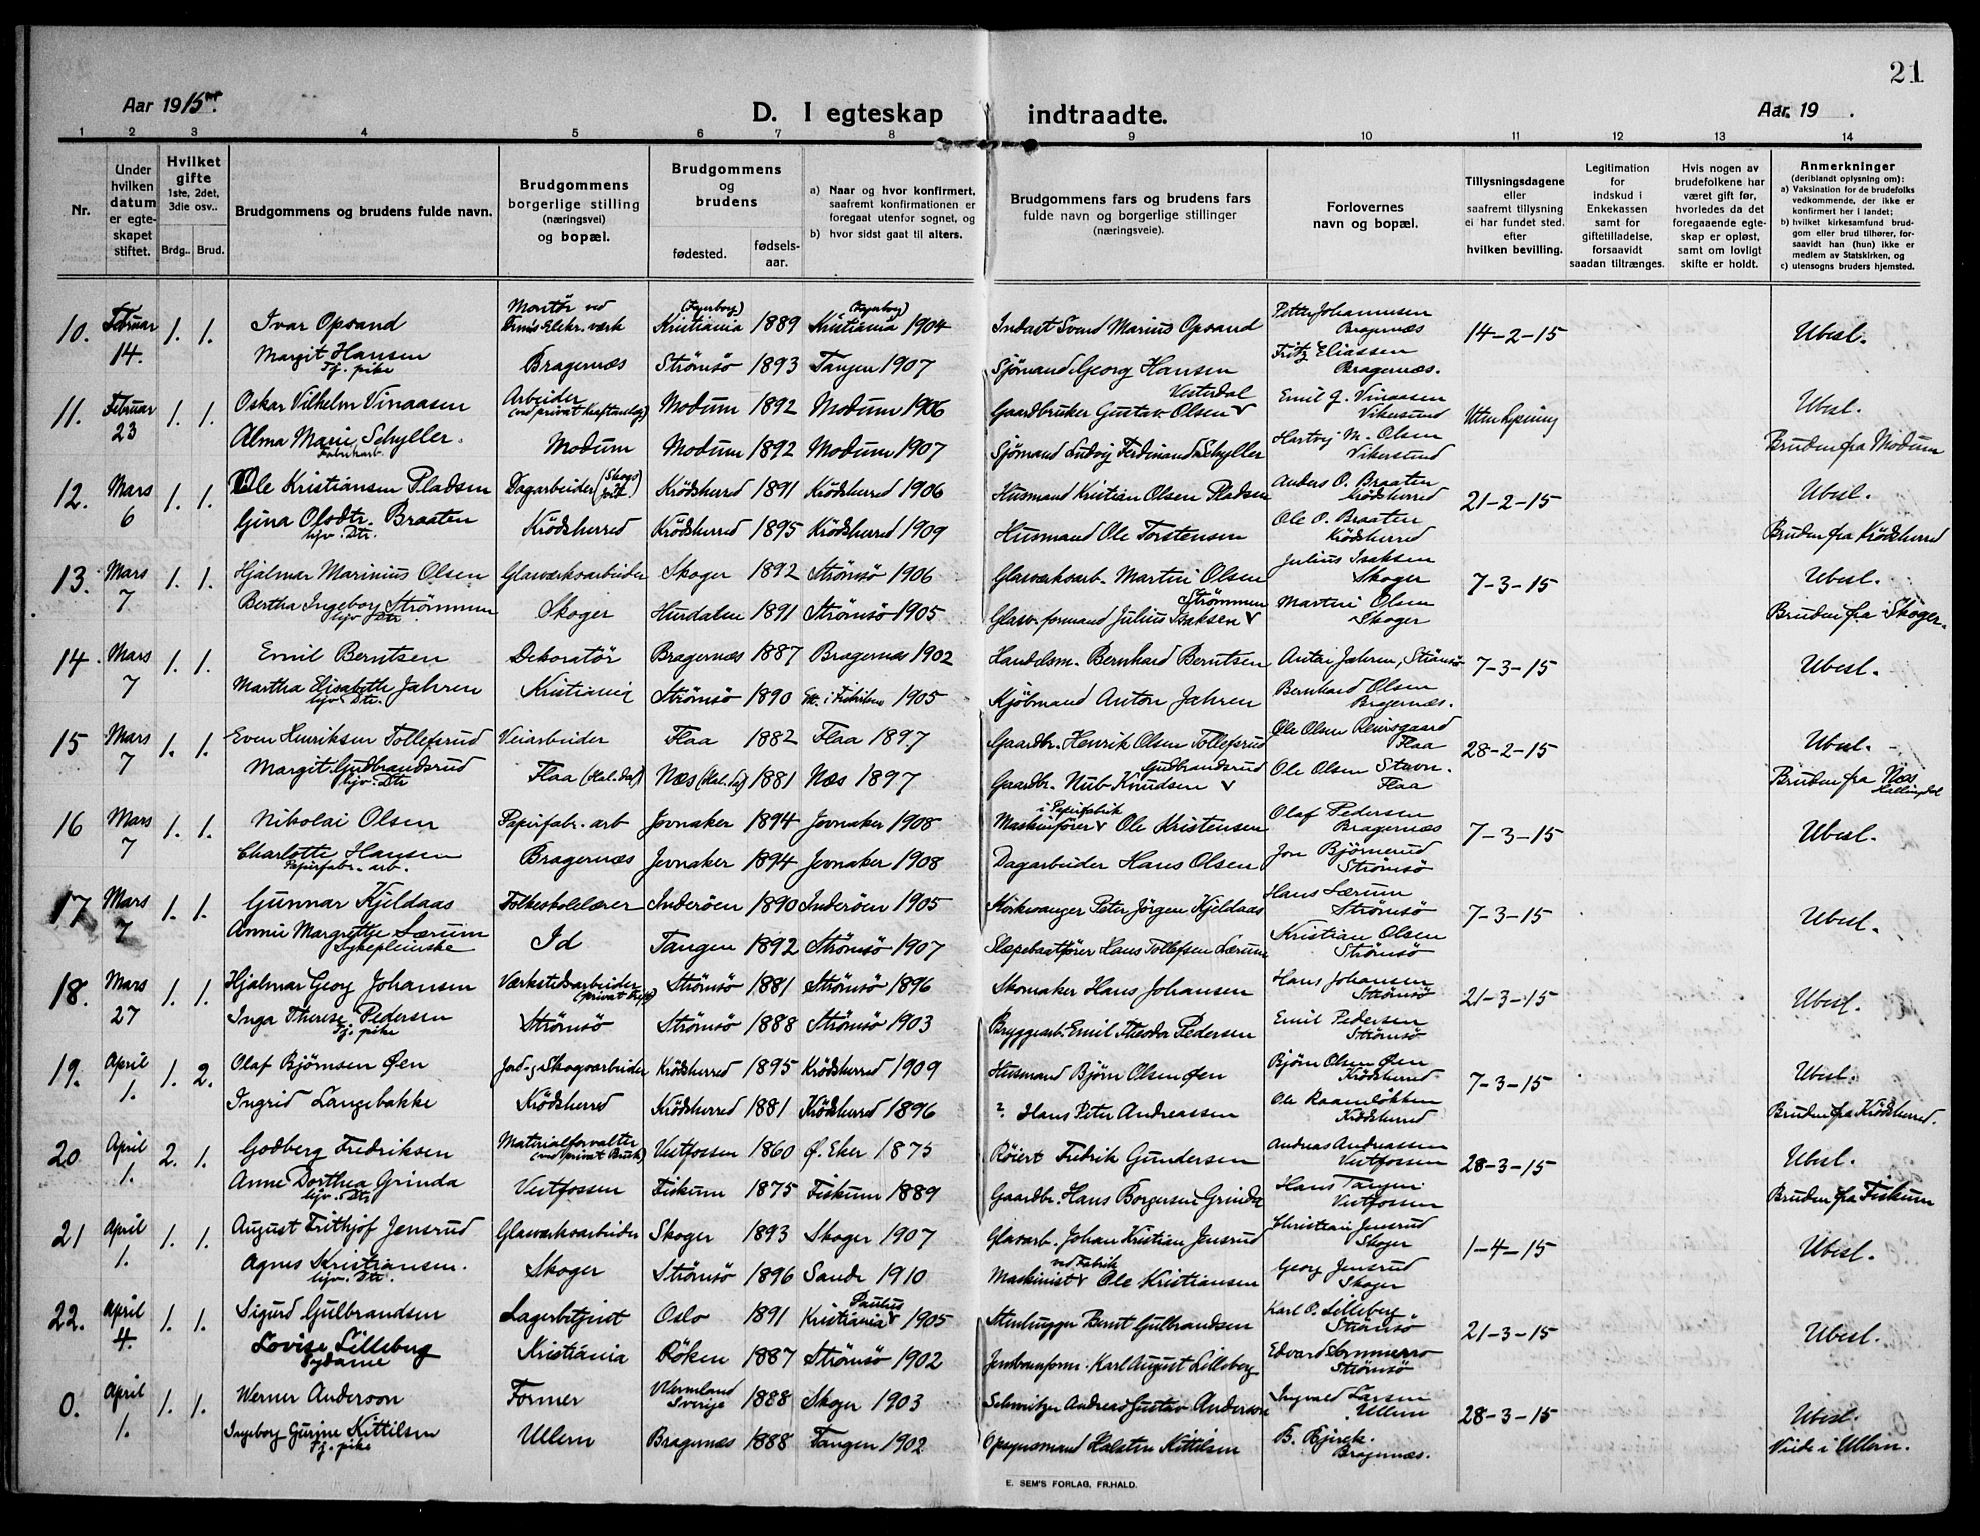 21
Aar 1915
D. I egteskap indtraadte.
Aar 19 .
1 2 3 4 5 6 7 8 9 10 11 12 13 14
Nr.
Under hvilken datum er egteskapet stiftet.
Hvilket gifte 1ste, 2det, 3die osv..
Brdg.. Brud.
Brudgommens og brudens fulde navn.
Brudgommens borgerlige stilling (næringsvei) og bopæl.
Brudgommens og brudens
fødested. fødselsaar.
a) Naar og hvor konfirmert, saafremt konfirmationen er foregaat utenfor sognet, og
b) hvor sidst gaat til alters.
Brudgommens fars og brudens fars fulde navn og borgerlige stillinger (næringsveie).
Forlovernes navn og bopæl.
Tillysningsdagene eller saafremt tillysning ei har fundet sted. efter hvilken bevilling.
Legitimation for indskud i Enkekassen samt for giftetilladelse, forsaavidt saadan tiltrænges.
Hvis nogen av brudefolkene har været gift før, hvorledes da det foregaaende egteskap er opløst, samt om lovligt skifte er holdt.
Anmerkninger (deriblandt oplysning om):
a) Vaksination for de brudefolks vedkommende, der ikke er konfirmert her i landet;
b) hvilket kirkesamfund brudgom eller brud tilhører, forsaavidt han (hun) ikke er medlem av Statskirken, og
c) utensogns bruders hjemsted.
10. Februar 14. 1. 1. Ivar Opsand Montör ved Elekr. værk (Fagerborg) Kristiania 1889 (Fagerborg) Kristiania 1904 Svend Marius Opsand Petter Johannesen Bragernæs 14-2-15 Ubesl.
Margit Hansen Tj. pike Bragernæs Strömsö 1893 Tangen 1907 Sjömand Georg Hansen Fritz Eliassen Bragernæs.
11. Februar 23 1. 1. Oskar Vilhelm Vinaasen Arbeider (ved privat Kraftanlæg) Modum 1892 Modum 1906 Gaardbruker Gustav Olsen Vesterdal Emil G. Vinaasen Vikersund Uten lysning Ubesl.
Alma Marie Schyller. Fabrikarb. Modum Modum 1892 Modum 1907 Sjömand Ludvig Ferdinand Schyller Hartvig M. Olsen Vikersund Bruden fra Modum
12. Mars 6 1. 1. Ole Kristiansen Pladsen Dagarbeider (Skog Jord) Krödsherred 1891 Krödsherred 1906 Husmand Kristian Olsen Pladsen Anders O. Braaten Krödsherred 21-2-15 Ubesl.
Gina Olsdtr. Braaten hjv. Dtr. Krödsherred Krödsherred 1895 Krödsherred 1909 Husmand Ole Torstensen Ole O. Braaten Krödsherred Bruden fra Krödsherred
13. Mars 7 1. 1. Hjalmar Marinius Olsen Glasværksarbeider Skoger 1892 Strömsö 1906 Glasværksarb. Martin Olsen Julius Isaksen Skoger 7-3-15 Ubesl.
Bertha Ingeborg Strömmen hjv. Dtr. Skoger Hurdalen 1891 Strömsö 1905 Glasv. formand Julius Isaksen Strömmen Martin Olsen Skoger Bruden fra Skoger.
14. Mars 7 1. 1. Emil Berntsen Dekoratör Bragernæs 1887 Bragernæs 1902 Handelsm. Bernhard Berntsen Anton Jahren, Strömsö 7-3-15 Ubesl.
Martha Elisabeth Jahren hjv. Dtr. Kristiania Strömsö 1890 1905 Kjöbmand Anton Jahren Bernhard Olsen Bragernæs.
15 Mars 7 1. 1. Even Henriksen Tollefsrud Veiarbeider Flaa 1882 Flaa 1897 Gaardbr. Henrik Olsen Tollefsrud Ole Olsen Flaa 28-2-15 Ubesl.
Margit Gudbrandsrud hjv. Dtr. Flaa (Hal. dal) Næs (Hal. dal) 1881 Næs 1897 Gaardbr. Nub Knudsen Gudbrandsrud Ole Olsen Stavn. Flaa Bruden fra Næs Hallingdal
16 Mars 7 1. 1. Nikolai Olsen Papirfabr. arb Jevnaker 1894 Jevnaker 1908 Maskinfører i Papirfabrik Ole Kristensen Olaf Pedersen Bragernæs 7-3-15 Ubesl.
Charlotte Hansen Papirfabr. arb. Bragernæs Jevnaker 1894 Jevnaker 1908 Dagarbeider Hans Olsen Jon Björnerud Strömsö
17 Mars 7 1. 1. Gunnar Kjeldaas Folkeskolelærer Inderöen 1890 Inderöen 1905 Kirkesanger Peter Jörgen Kjeldaas Hans Lærum Strömsö 7-3-15 Ubesl.
Annie Margrethe Lærum Sykepleierske Id Tangen 1892 Strömsö 1907 Slæpebaatfører Hans Tollefsen Lærum Kristian Olsen Strömsö
18. Mars 27 1. 1. Hjalmar Georg Johansen Værkstedsarbeider (privat) Strömsö 1881 Strömsö 1896 Skomaker Hans Johansen Hans Johansen Strömsö 21-3-15 Ubesl.
Inga Therese Pedersen Tj. pike Strömsö Strömsö 1888 Strömsö 1903 Bryggearb. Emil Theodor Pedersen Emil Pedersen Strömsö
19. April 1. 1. 2. Olaf Bjørnsen Øen Jord- og Skogsarbeider Krödsherred 1895 Krödsherred 1909 Husmand Björn Olsen Øen Bjørn Olsen Øen Krödsherred 7-3-15 Ubesl.
Ingrid Langebakke Krödsherred Krödsherred 1881 Krödsherred 1896 ? Hans Peter Andreassen Ole Raamløkken Krödsherred Bruden fra Krödsherred.
20 April 1. 2. 1. Godberg Fredriksen Materialforvalter (ved privat Bruk) Vestfossen 1860 Ø. Eker 1875 Röiert Fredrik Gundersen Andreas Andreassen Vestfossen 28-3-15 Ubesl.
Anne Dorthea Grinda hjv. Dtr. Vestfossen Fiskum 1875 Fiskum 1889 Gaardbr. Hans Borgersen Grinda Hans Tangen Vestfossen Bruden fra Fiskum
21 April 1. 1. 1. August Frithjof Jensrud Glasværksarbeider Skoger 1893 Skoger 1907 Glasarb. Johan Kristian Jensrud Christian Jensrud Skoger 1-4-15 Ubesl.
Agnes Kristiansen. hjv. Dtr. Skoger Strömsö 1896 Sande 1910 Maskinist ved Fabrik Ole Kristiansen Georg Jensrud Skoger
22. April 4. 1. 1. Sigurd Gulbrandsen Lagerbetjent Oslo 1891 Paulus Kristiania 1905 Stenhugger Bernt Gulbrandsen Karl O. Lilleberg Strömsö 21-3-15 Ubesl.
Lovise Lilleberg Sydame Kristiania Röken 1887 Strömsö 1902 Jernbaneform. Karl August Lilleberg Edvard Sommerro Strömsö
0. April 1. 1. 1. Werner Anderson Former Vermland Sverige 1888 Skoger 1903 Schweitzer Andreas Gustav Anderson Ingvald Larsen Ullern 28-3-15 Ubesl.
Ingeborg Gurine Kittilsen Tj. pike Ullern Bragernæs 1888 Tangen 1902 Opsynsmand Halsten Kittilsen B. Bragernæs. Viede i Ullern.
E. SEM'S FORLAG, FR.HALD.